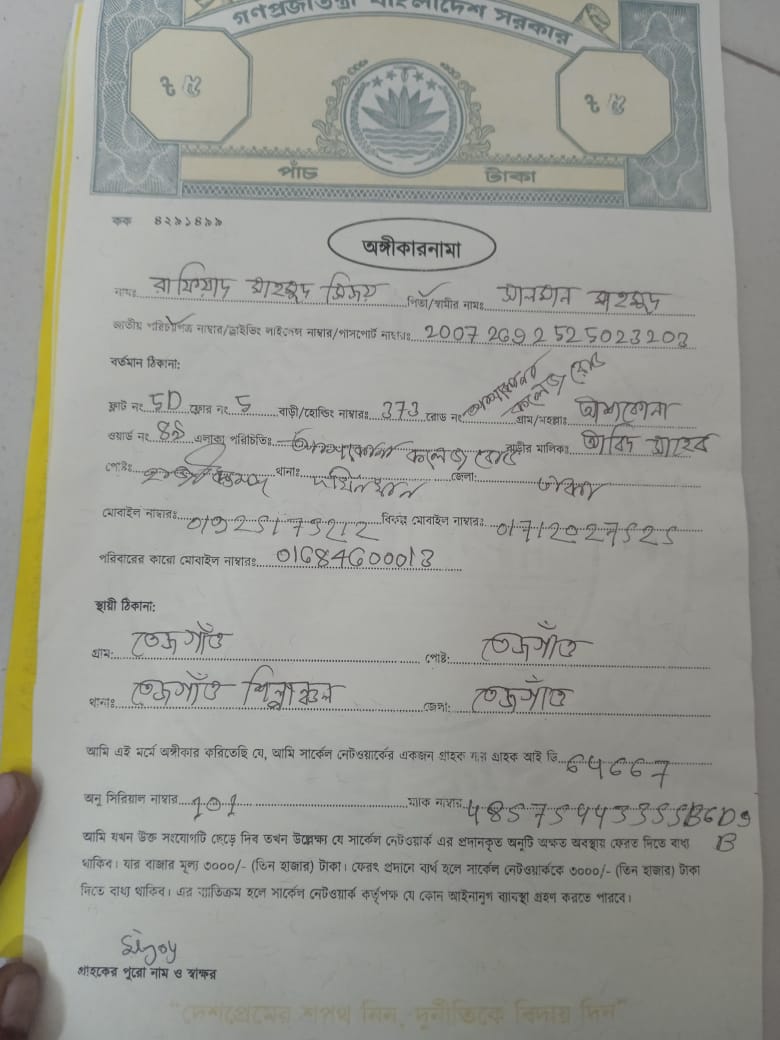 গণপ্রজাতন্ত্রী বাংলাদেশ সরকার
৳ ৫ ৳ ৫
পাঁচ টাকা
কক ৪২৯১৪৯৯
অঙ্গীকারনামা
নামঃ রাফিয়াদ মাহমুদ বিজয় পিতা/স্বামীর নামঃ সালমান মাহমুদ
জাতীয় পরিচয়পত্র নাম্বার/ড্রাইভিং লাইসেন্স নাম্বার/পাসপোর্ট নাম্বারঃ 20072692525023203
বর্তমান ঠিকানা:
ফ্লাট নং 5D ফ্লোর নং 5 বাড়ী/হোল্ডিং নাম্বারঃ 373 রোড নং আশকোনা কলেজ রোড গ্রাম/মহল্লাঃ আশকোনা
ওয়ার্ড নং এলাকা পরিচিতিঃ আশকোনা কলেজ রোড বাড়ীর মালিকঃ আবিদ সাহেব
পোষ্টঃ থানাঃ দক্ষিনখান জেলা: ঢাকা
মোবাইল নাম্বারঃ 01925175212 বিকল্প মোবাইল নাম্বারঃ 01712027525
পরিবারের কারো মোবাইল নাম্বারঃ 01684600013
স্থায়ী ঠিকানা:
গ্রাম: তেজগাঁও পোষ্ট: তেজগাঁও
থানাঃ তেজগাঁও শিল্পাঞ্চল জেলা: তেজগাঁও
আমি এই মর্মে অঙ্গীকার করিতেছি যে, আমি সার্কেল নেটওয়ার্কের একজন গ্রাহক যার গ্রাহক আই ডি 64667
অনু সিরিয়াল নাম্বার 101 ম্যাক নাম্বার 48575443355B6D9
B
আমি যখন উক্ত সংযোগটি ছেড়ে দিব তখন উল্লেক্ষ্য যে সার্কেল নেটওয়ার্ক এর প্রদানকৃত অনুটি অক্ষত অবস্থায় ফেরত দিতে বাধ্য
থাকিব। যার বাজার মূল্য ৩০০০/- (তিন হাজার) টাকা। ফেরৎ প্রদানে ব্যর্থ হলে সার্কেল নেটওয়ার্ককে ৩০০০/- (তিন হাজার) টাকা
দিতে বাধ্য থাকিব। এর ব্যতিক্রম হলে সার্কেল নেটওয়ার্ক কর্তৃপক্ষ যে কোন আইনানুগ ব্যাবস্থা গ্রহণ করতে পারবে।
Bijoy
গ্রাহকের পুরো নাম ও স্বাক্ষর
"দেশপ্রেমের শপথ নিন, দুর্নীতিকে বিদায় দিন"